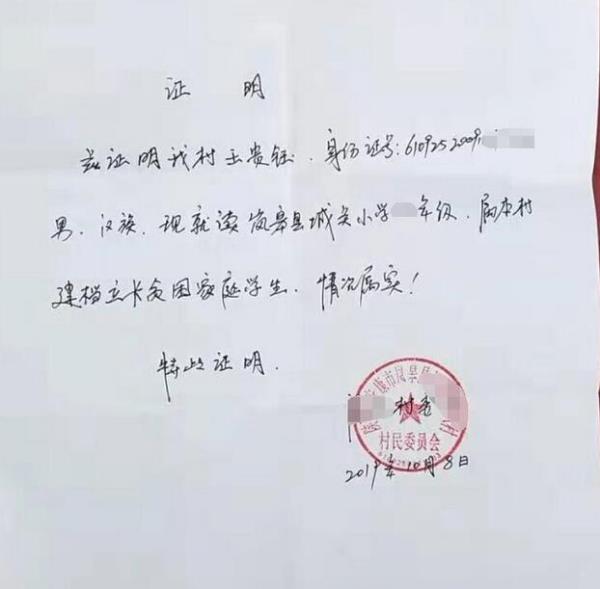 证 明
兹证明我村王贵钰、身份证号:6109252009
男、汉族、现就读岚皋县城关小学 年级、属本村
建档立卡贫困家庭学生、情况属实!
特此证明.
安康市岚皋县
村委
村民委员会
2019年10月8日